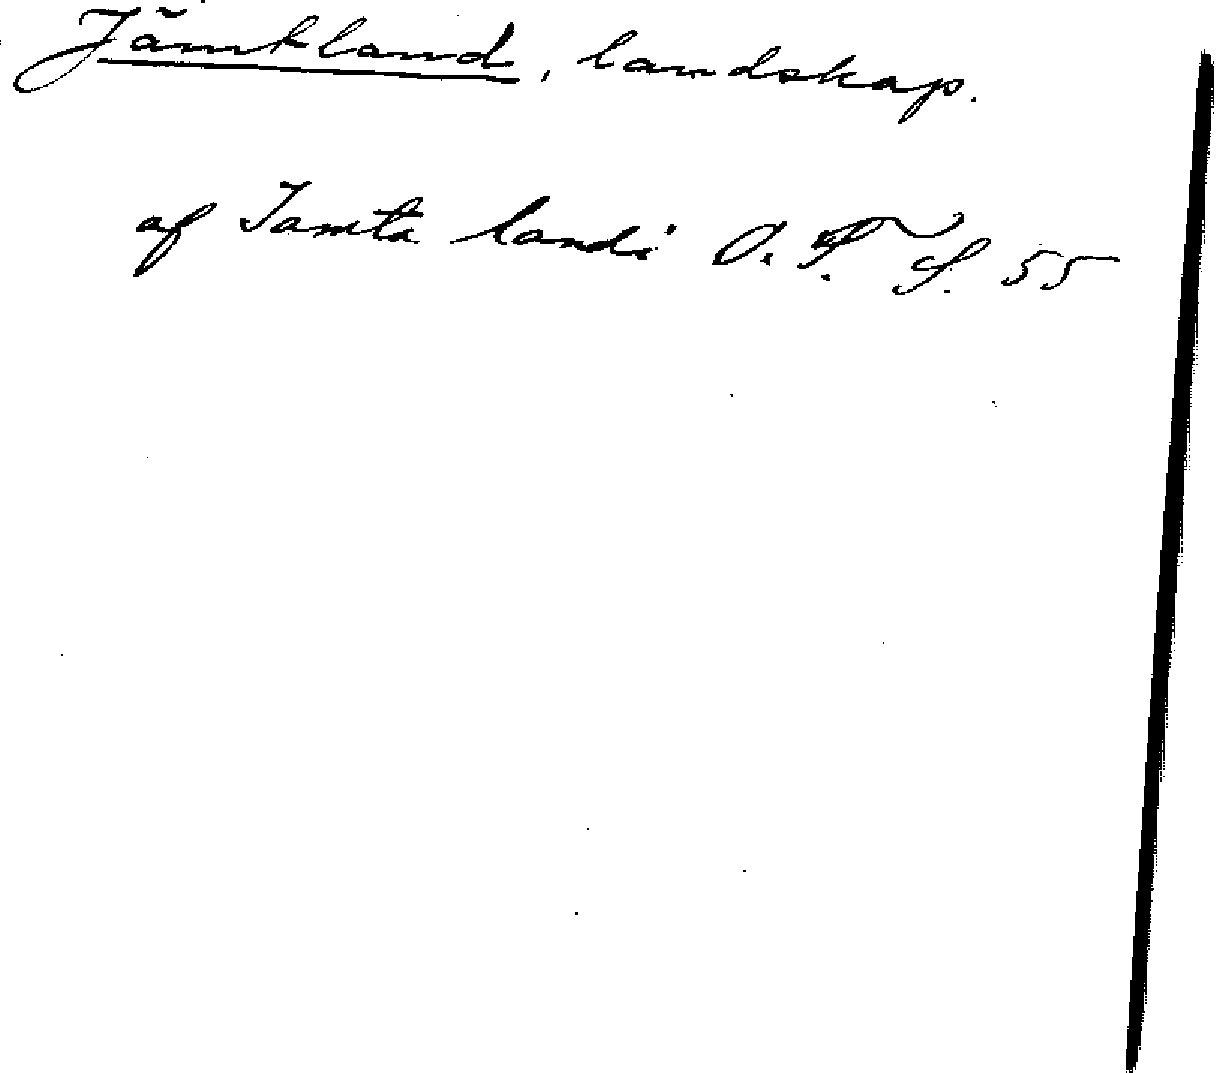 Jämtland, landskap.
af Iamta landi O. T. S. 55